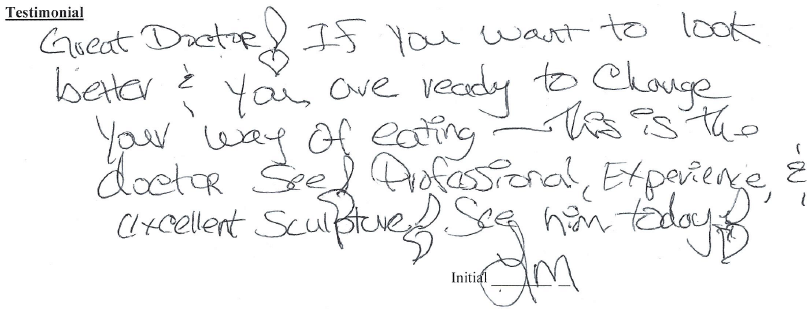 Testimonial
Great Doctor! If you want to look
better & you are ready to Change
your way of eating — This is the
doctor See! Professional, Experience, &
excellent Sculpture! See him today!
Initial JM